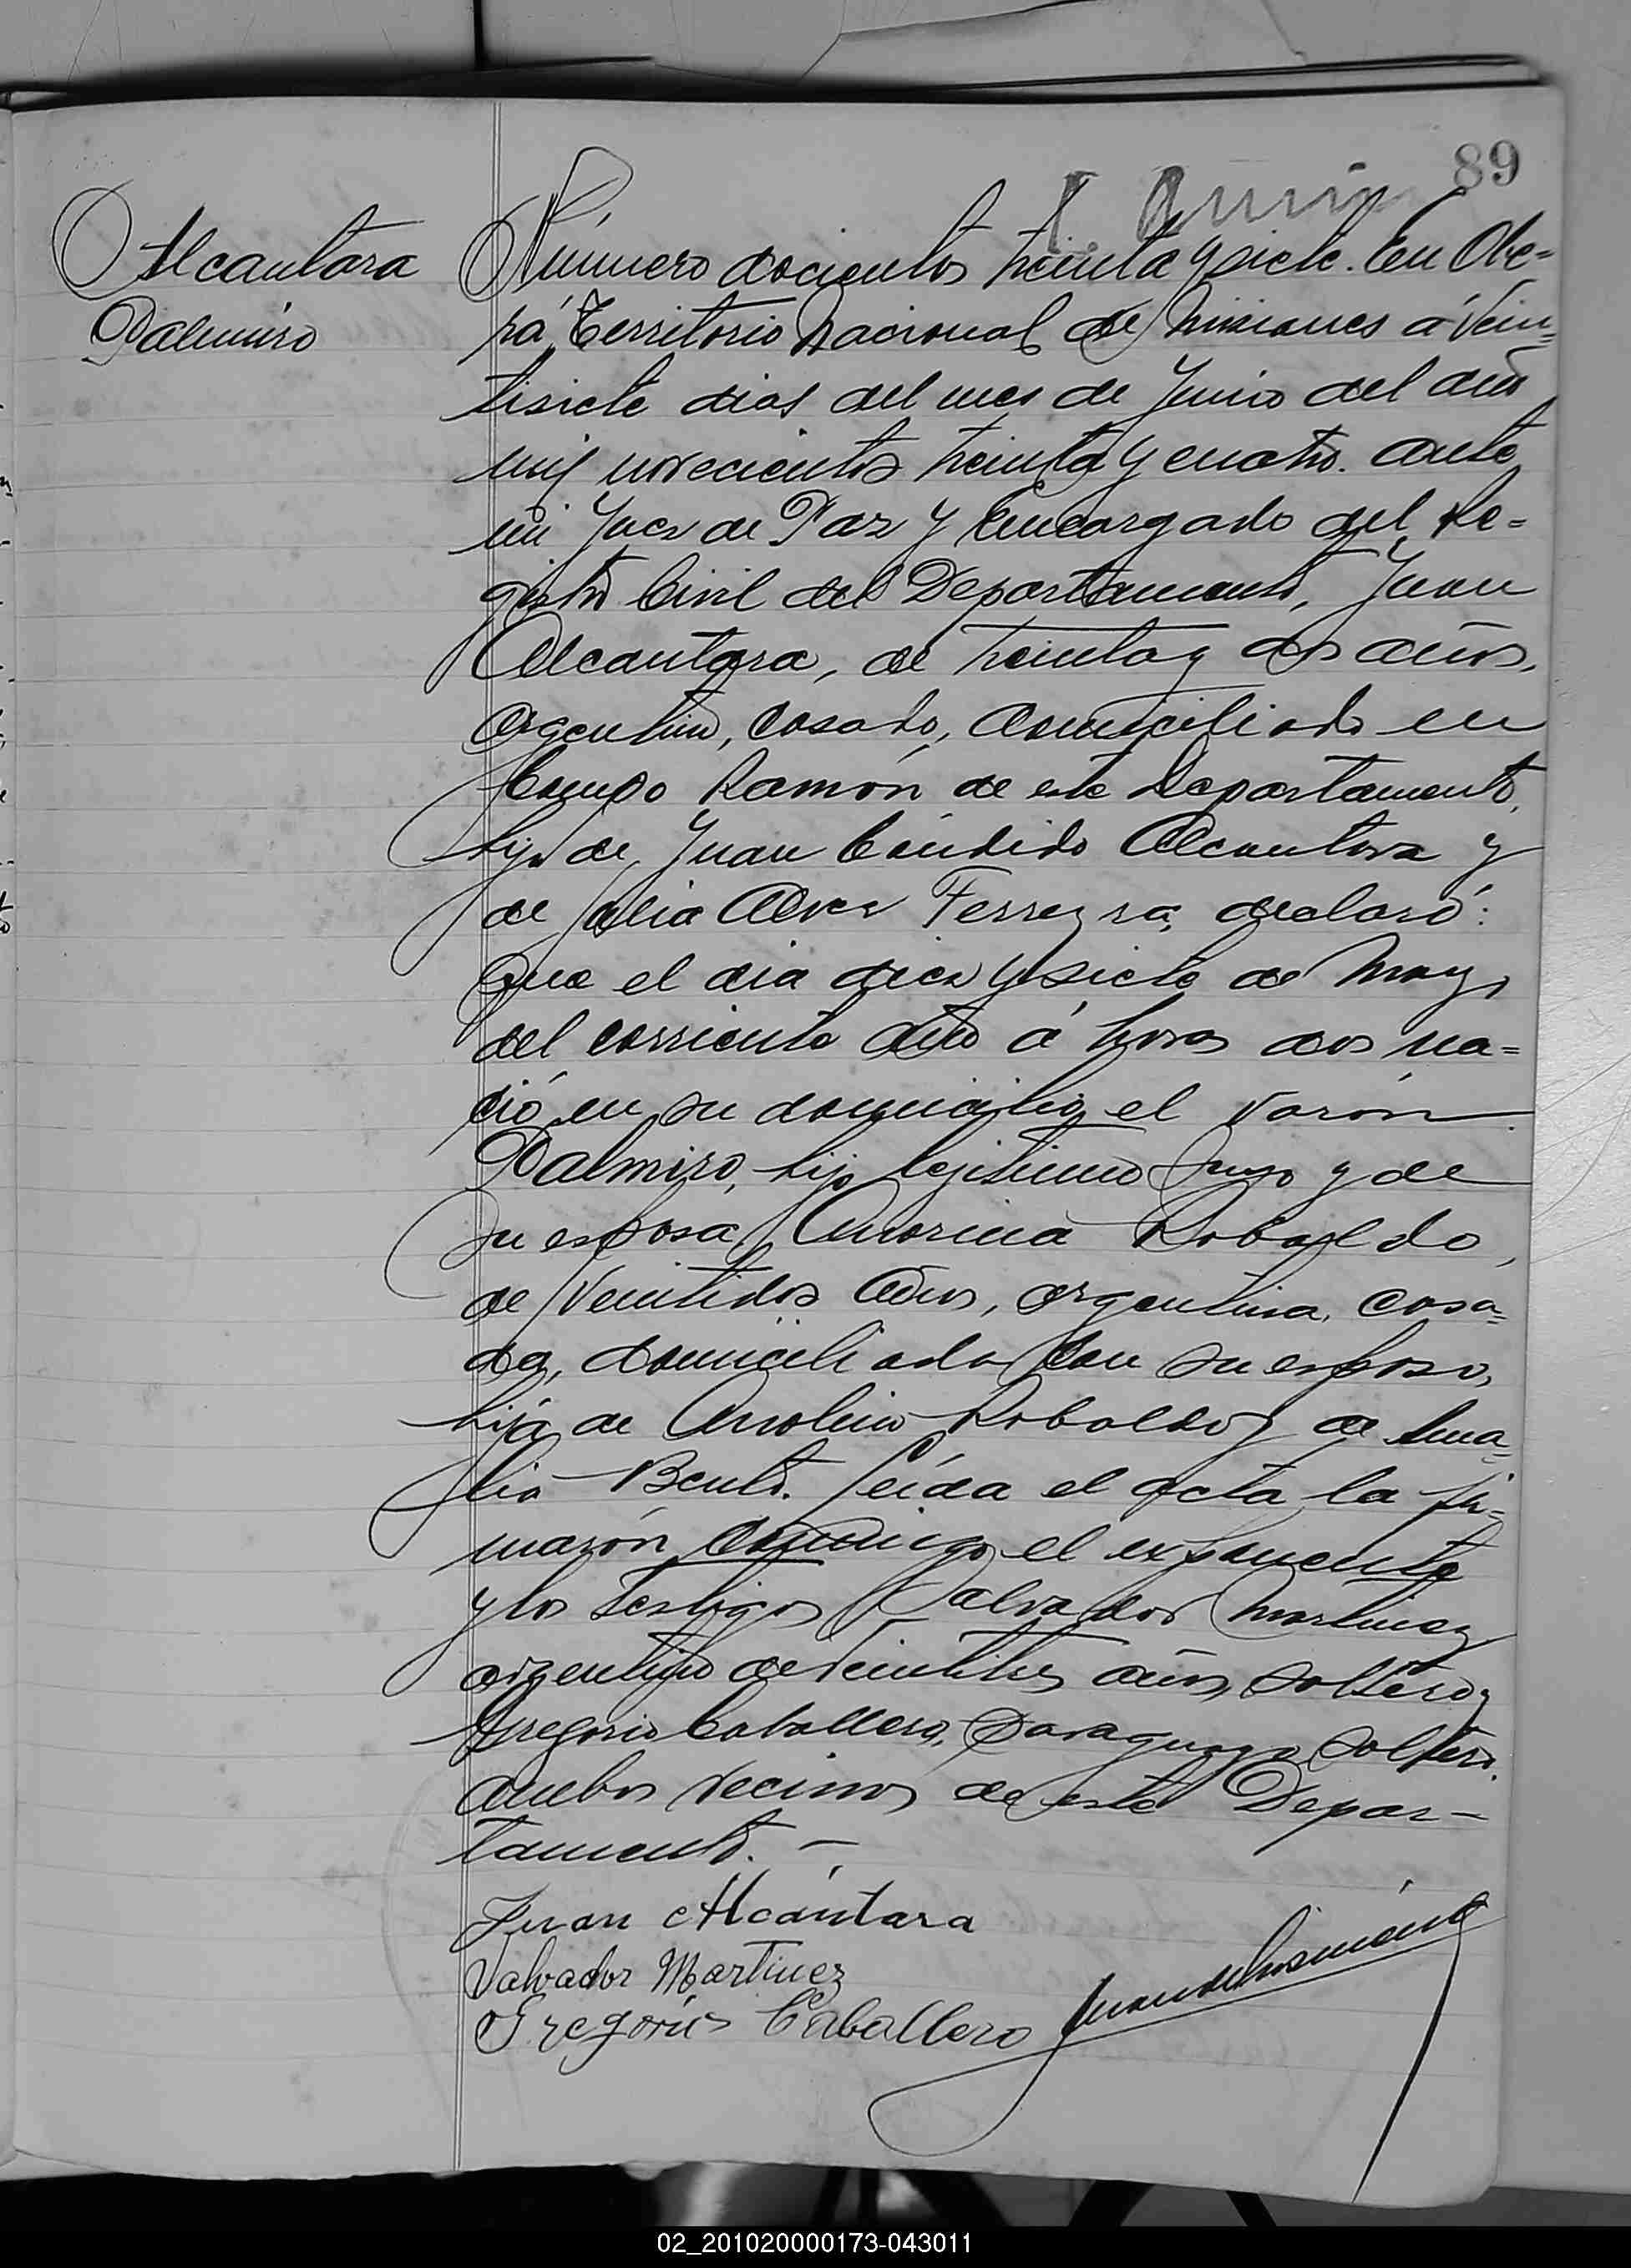 89
Alcantara
Palmiro
Número docientos treinta y siete. En Obe=
rá, Territorio Nacional de Misiones á Vein=
tisiete dias del mes de Junio del año
mil novecientos treinta y cuatro. ante
mi Juez de Paz y Encargado del Re=
gistro Civil del Departamento, Juan
Alcantara, de treinta y dos años,
argentino, casado, domiciliado en
Campo Ramón de este Departamento,
hijo de Juan Cándido Alcantara y
de Julia Alvez Ferreyra, declaró:
Que el dia diez y siete de Mayo
del corriente año á horas dos na=
ció en su domicilio el varón
Palmiro, hijo legitimo suyo y de
su esposa Robaldo,
de Veintidos años, argentina, casa=
da, domiciliada con su esposo,
hija de Robaldo y de Ama=
lia Bento. Leida el acta la fir=
marón conmigo el exponente
y los testigos Salvador Martinez
argentino de veintitres años, soltero y
Gregorio Caballero, paraguayo soltero.
ambos vecinos de este Depar-
tamento. -
Juan Alcántara
Salvador Martinez
Gregorio Caballero
02_201020000173-043011